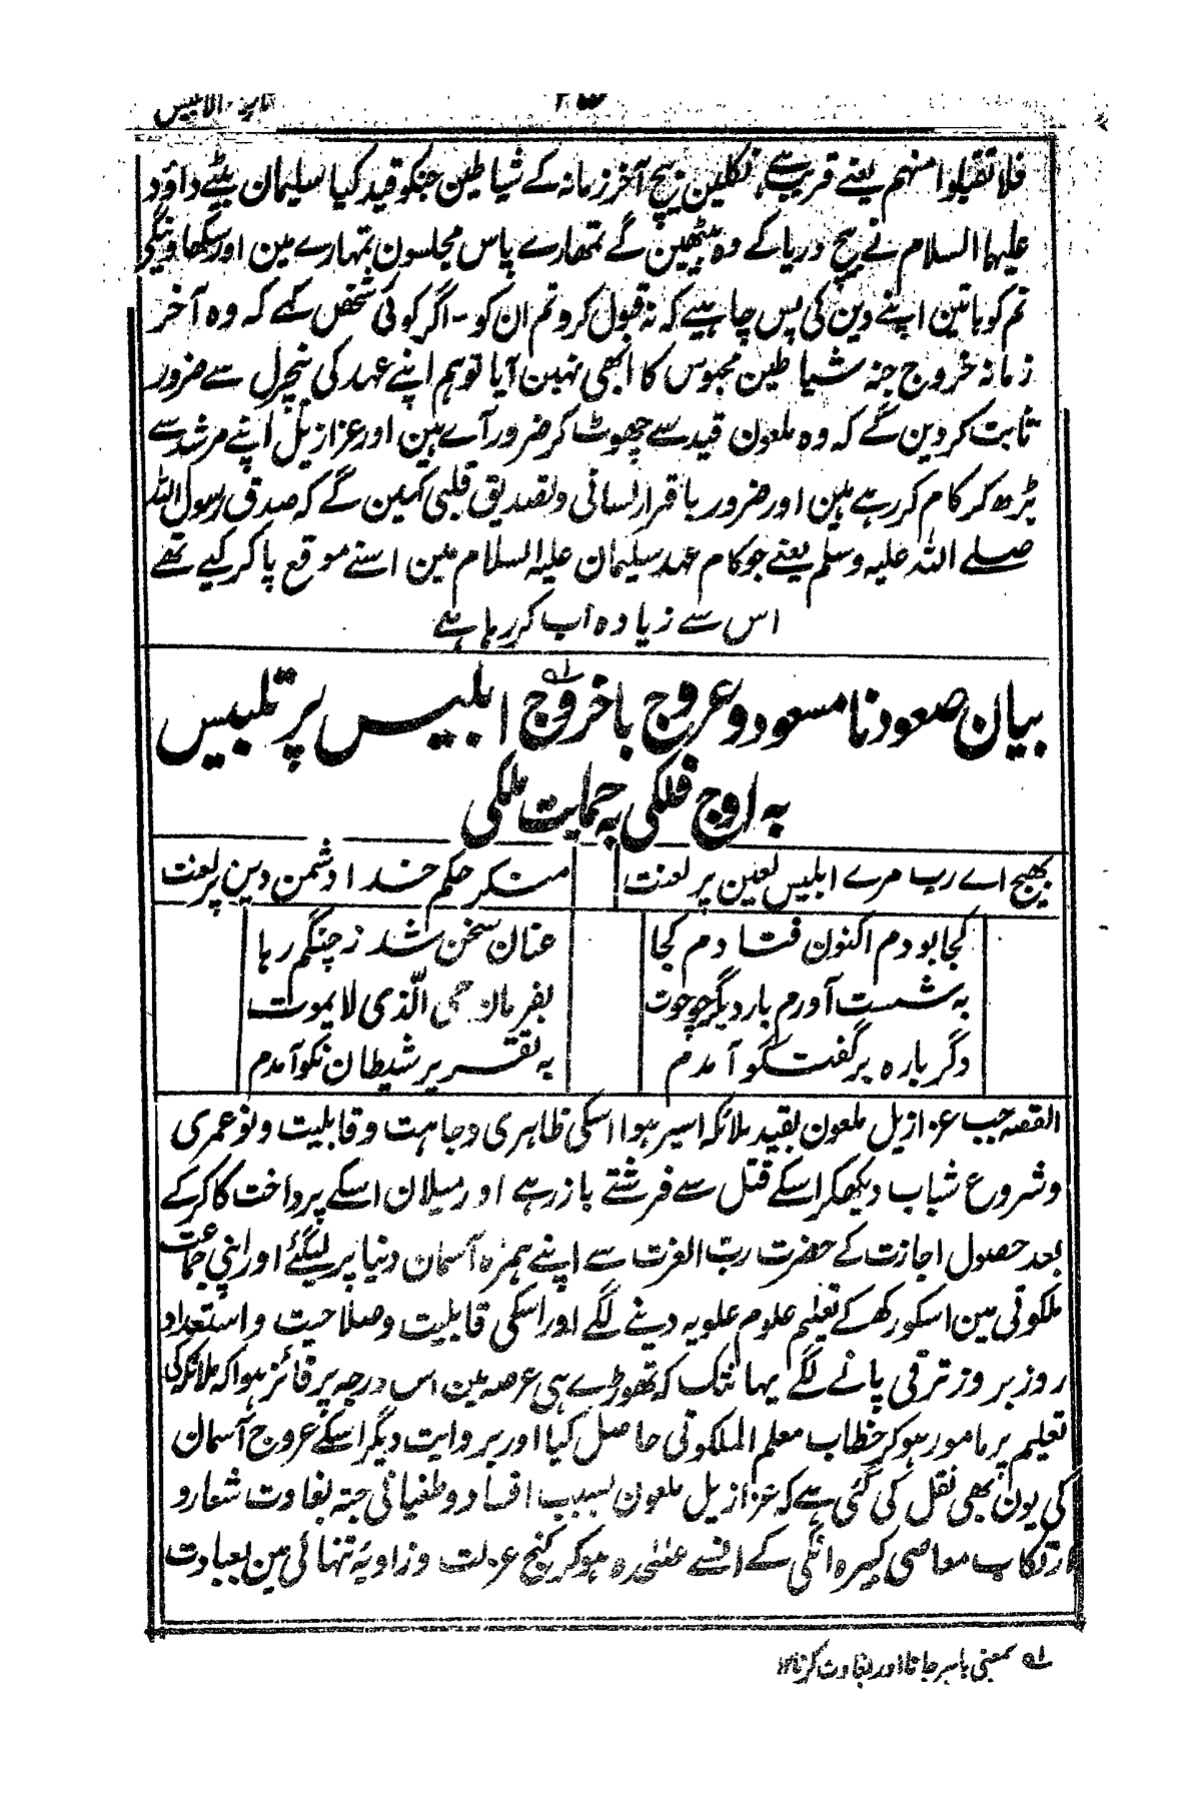 تاریخ الابلیس
فلا تقبلوا منهم یعنے قریب ہے نکلین بیچ آخر زمانہ کے شیاطین جنکو قید کیا سلیمان بیٹے داؤد
علیہما السلام نے بیچ دریا کے وہ بیٹھین گے تمھارے پاس مجلسون تمہارے مین اور سکھاوینگے
تم کو باتین اپنے دین کی پس چاہیے کہ نہ قبول کرو تم ان کو - اگر کوئی شخص کہے کہ وہ آخر
زمانہ خروج جنہ شیاطین محبوس کا ابھی نہین آیا تو ہم اپنے عہد کی نیچرل سے ضرور
ثابت کر دین گے کہ وہ ملعون قید سے چھوٹ کر ضرور آے ہین اور عزازیل اپنے مرشد سے
بڑھ کر کام کر رہے ہین اور ضرور باقرار لسانی و تصدیق قلبی کہین گے کہ صدق رسول اللہ
صلے اللہ علیہ وسلم یعنے جو کام عہد سلیمان علیہ السلام مین اسنے موقع پا کر کیے تھے
اس سے زیادہ اب کر رہا ہے
بیان صعود نا مسعود و عروج با خروج ابلیس پر تلبیس
بہ اوج فلکی بہ حمایت ملکی
بھیج اے رب مرے ابلیس لعین پر لعنت منکر حکم خدا دشمن دین پر لعنت
کجا بودم اکنون فتادم کجا عنان سخن شد ز چنگم رہا
بہ شست آورم بار دیگر چو حوت بفرمان حی الّذی لا یموت
دگر بارہ بر گفتگو آمدم بہ تقریر شیطان نکو آمدم
القصہ جب عزازیل ملعون بقید ملائکہ اسیر ہوا اسکی ظاہری وجاہت و قابلیت و نو عمری
و شروع شباب دیکھکر اسکے قتل سے فرشتے باز رہے اور میلان اسکے پرداخت کا کر کے
بعد حصول اجازت کے حضرت ربّ العزت سے اپنے ہمراہ آسمان دنیا پر لیگئے اور اپنی جماعت
ملکوتی مین اسکو رکھ کے تعلیم علوم علویہ دینے لگے اور اسکی قابلیت و صلاحیت و استعداد
روز بروز ترقی پانے لگے یہانتک کہ تھوڑے ہی عرصہ مین اس درجہ پر فائز ہوا کہ ملائکہ کی
تعلیم پر مامور ہو کر خطاب معلم الملکوتی حاصل کیا اور بروایت دیگر اسکے عروج آسمان
کی یون بھی نقل کی گئی ہے کہ عزازیل ملعون بسبب افساد و طغیانی جنہ بغاوت شعار و
ارتکاب معاصی کبیرہ انکی کے انسے علٰحدہ ہو کر کنج عزلت و زاویۂ تنہائی مین بعبادت
لہ بمعنی باہر جانا اور بغاوت کرنا ۱۲